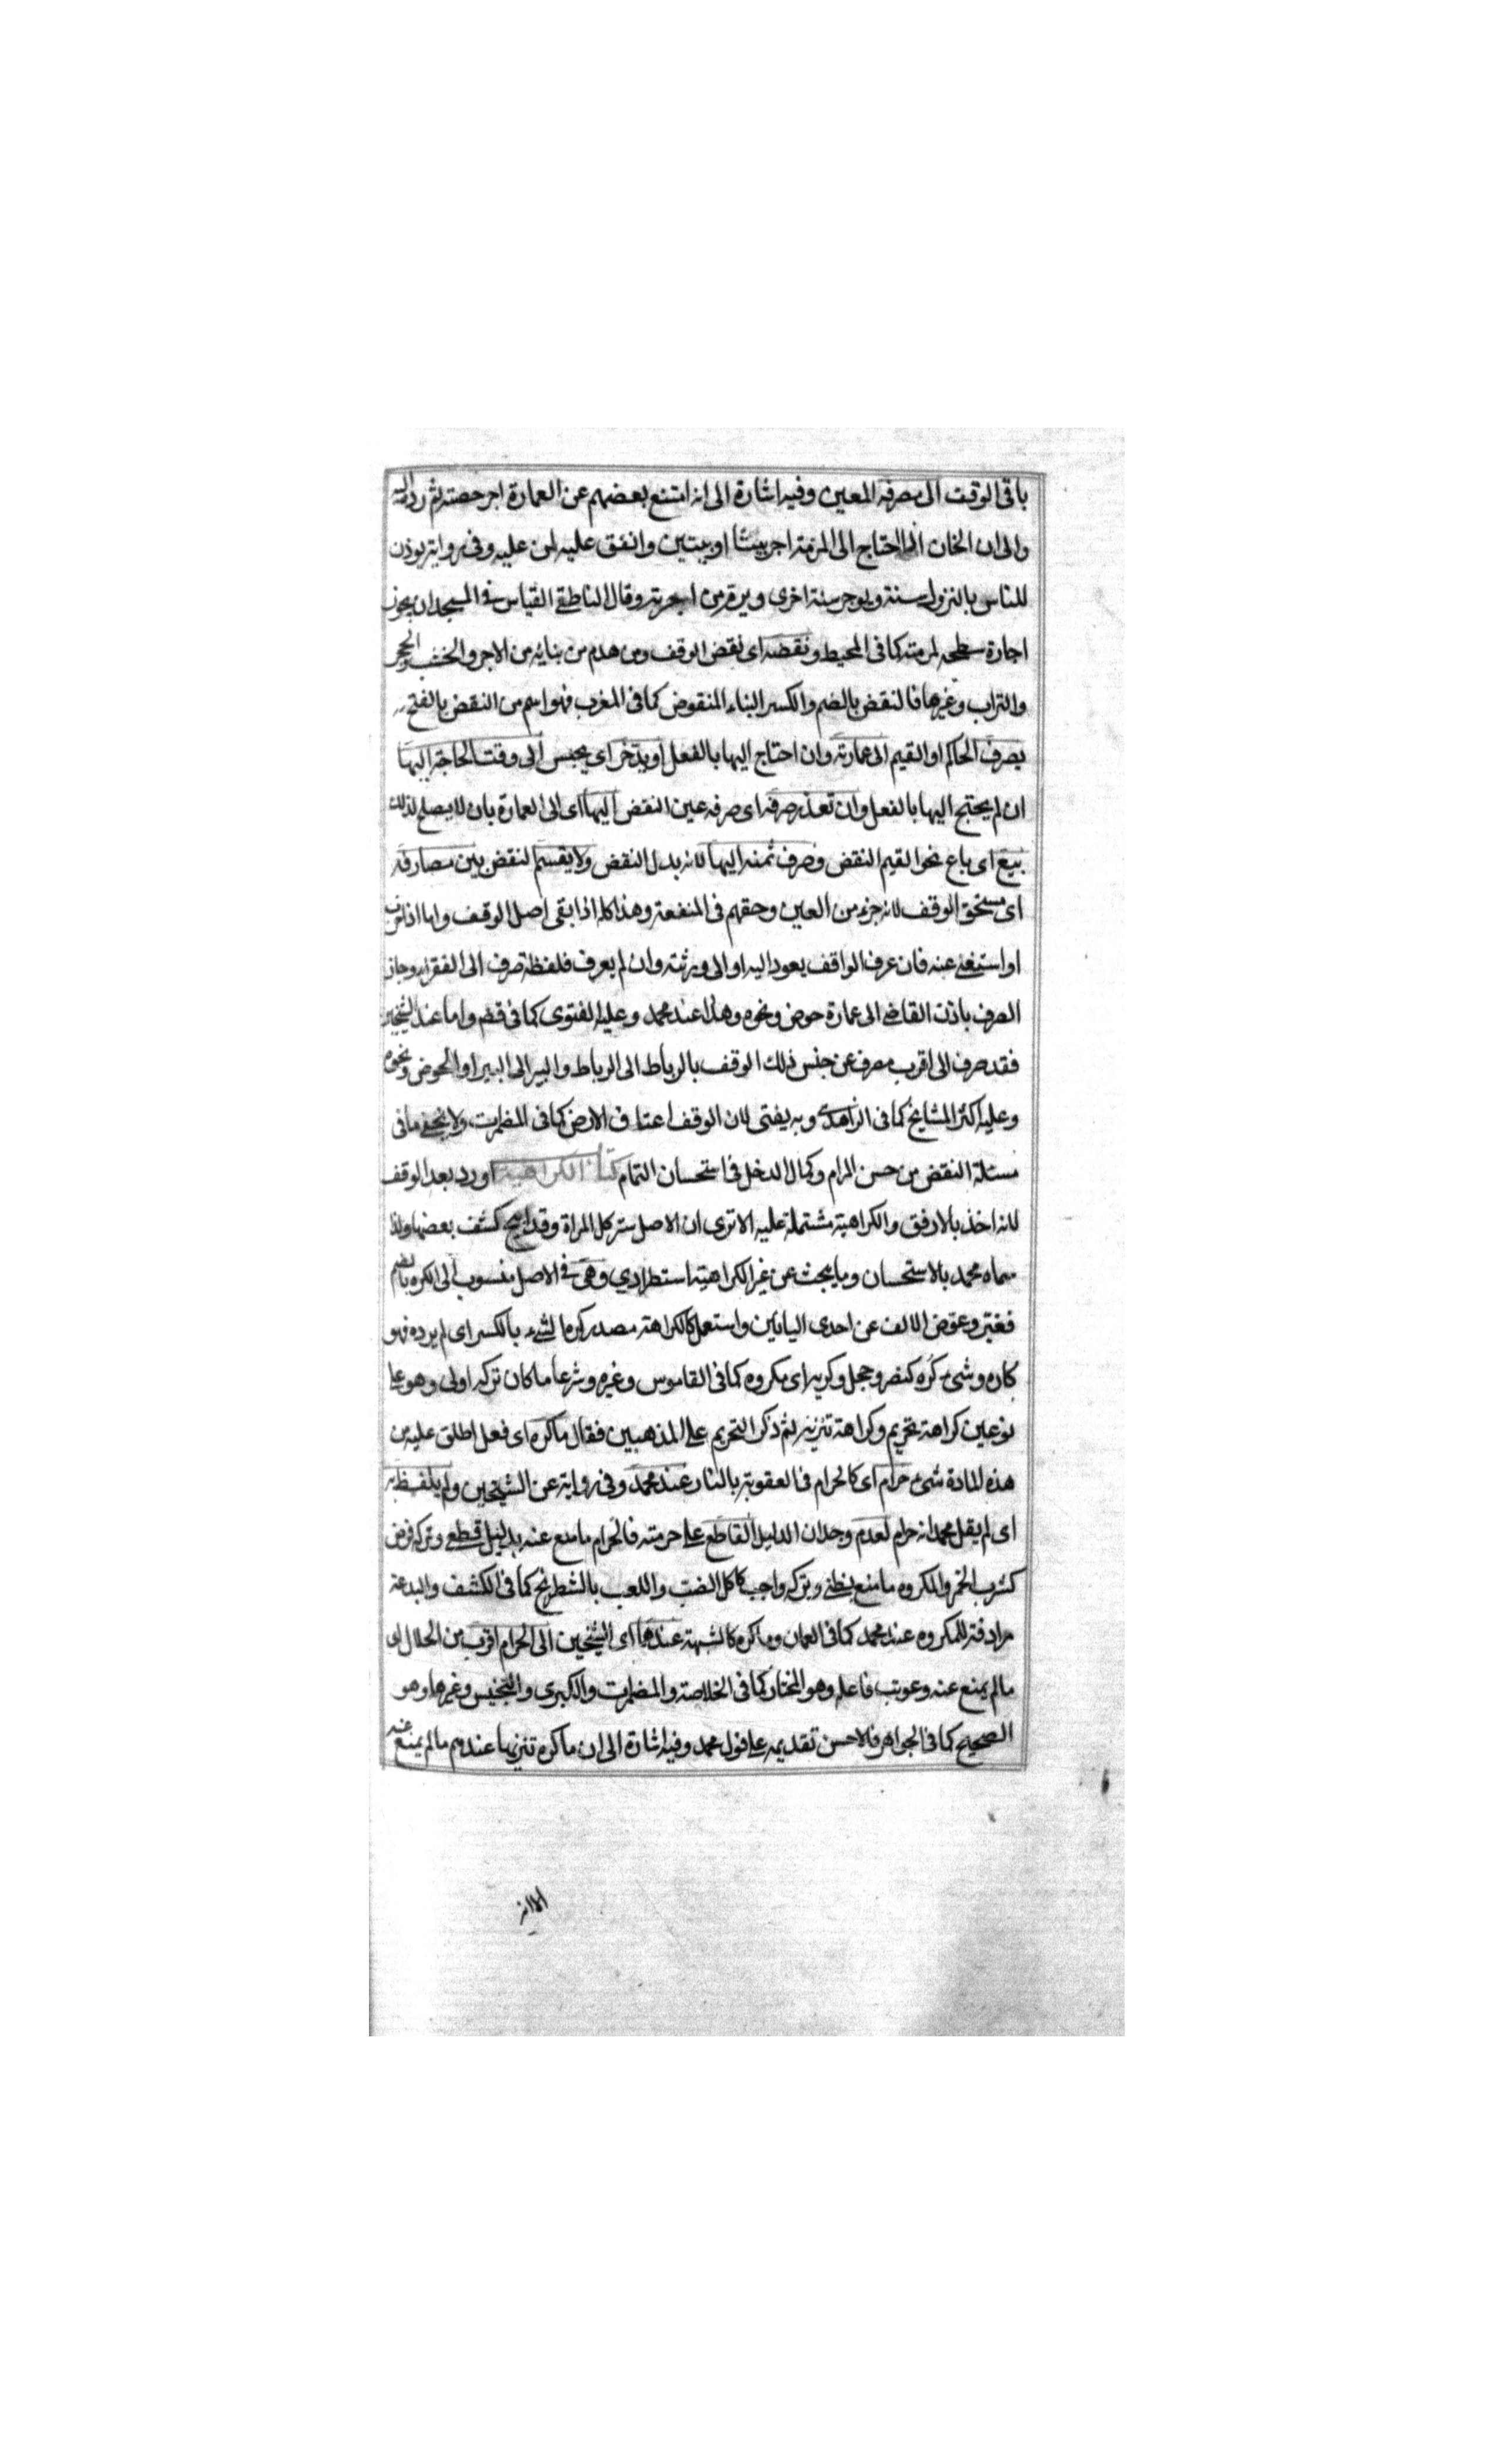 باقى الوقت الى مصرفه المعين وفيه اشارة الى انه امتنع بعضهم عن العمارة اجر حصته ثم رد اليه
والى ان الخان اذا احتاج الى المرمة اجر بيتا او بيتين وانفق عليه من عليه وفى رواية يوذن
للناس بالنزول سنة ويوجر سنة اخرى ويرم من اجرته وقال الناطفى القياس فى المسجد ان يجوز
اجارة سطحه لمرمته كما فى المحيط ونقضه اى نقض الوقف ومن هدم من بنائه من الاجر والخشب والحجر
والتراب وغيرها فالنقض بالضم والكسر البناء المنقوض كما فى المغرب فهو اسم من النقض بالفتح
يصرف الحاكم او القيم الى عمارته وان احتاج اليها بالفعل او يدخر اى يحبس الى وقت الحاجة اليها
ان لم يحتج اليها بالفعل وان تعذر صرفه اى صرف عين النقض اليها اى الى العمارة بان لا يصلح لذلك
بيع اى باع نحو القيم النقض وصرف ثمنه اليها لانه بدل النقض ولا يقسم النقض بين مصارفه
اى مستحق الوقف لانه جزء من العين وحقهم فى المنفعة وهذا كله اذا بقى اصل الوقف واما اذا خرب
او استغنى عنه فان عرف الواقف يعود اليه او الى ورثته وان لم يعرف فلقطة صرف الى الفقراء وجاز
الصرف باذن القاضى الى عمارة حوض ونحوه وهذا عند محمد وعليه الفتوى كما فى وقفهم واما عند الشيخين
فقد صرف الى اقرب مصرف عن جنس ذلك الوقف بالرباط الى الرباط والبير الى البير او الحوض ونحوه
وعليه اكثر المشايخ كما فى الزاهدى وبه يفتى لان الوقف اعتاق الارض كما فى المضمرات ولا يخفى ما فى
مسئلة النقض من حسن المرام وكمال الدخل فى استحسان التمام كتاب الكراهية اورد بعد الوقف
لانه اخذ بالارفق والكراهية مشتملة عليه الا ترى ان الاصل ستر كل المراة وقد ابيح كشف بعضها ولذا
سماه محمد بالاستحسان وما يبحث عن غير الكراهية استطرادي وهى فى الاصل منسوب الى الكره بالضم
فغير وعوض الالف عن احدى اليائين واستعمل كالكراهة مصدر كره الشىء بالكسر اى لم يرده فهو
كاره وشىء كره كنصر وحجل وكريه اى مكروه كما فى القاموس وغيره وشرعا ما كان تركه اولى وهو على
نوعين كراهة تحريم وكراهة تنزيه ثم ذكر التحريم على المذهبين فقال ما كره اى فعل اطلق عليه من
هذه المادة شىء حرام اى كالحرام فى العقوبة بالنار عند محمد وفى رواية عن الشيخين ولم يلفظ به
اى لم يقل محمد انه حرام لعدم وجدان الدليل القاطع على حرمته فالحرام ما منع عنه بدليل قطعى وتركه فرض
كشرب الخمر والمكروه ما منع بظنى وتركه واجب كاكل الضب واللعب بالشطرنج كما فى الكشف والبدعة
مرادفة للمكروه عند محمد كما فى العمان وما كره كالشبهة عندهما اى الشيخين الى الحرام اقرب من الحلال اى
ما لم يمنع عنه وعوتب فاعله وهو المختار كما فى الخلاصة والمضمرات والكبرى والتجنيس وغيرها وهو
الصحيح كما فى الجواهر فالاحسن تقديمه على قول محمد وفيه اشارة الى ان ما كره تنزيها عندهم ما لم يمنع عنه
الا انه